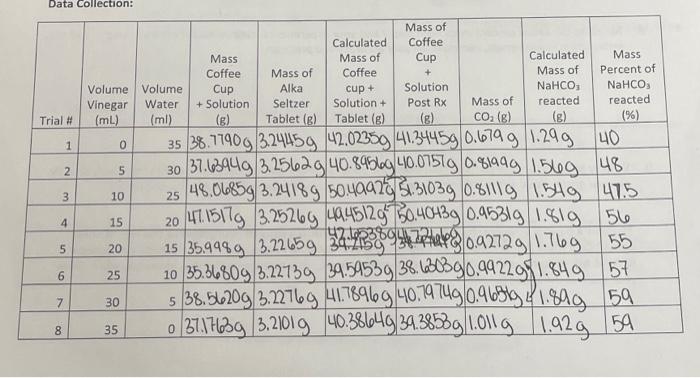 Data Collection:
Trial # | Volume Vinegar (mL) | Volume Water (ml) | Mass Coffee Cup + Solution (g) | Mass of Alka Seltzer Tablet (g) | Calculated Mass of Coffee cup + Solution + Tablet (g) | Mass of Coffee Cup + Solution Post Rx (g) | Mass of CO₂ (g) | Calculated Mass of NaHCO₃ reacted (g) | Mass Percent of NaHCO₃ reacted (%)
1 | 0 | 35 | 38.7790g | 3.2445g | 42.0235g | 41.3445g | 0.679g | 1.29g | 40
2 | 5 | 30 | 37.6394g | 3.2562g | 40.8956g | 40.0757g | 0.8199g | 1.56g | 48
3 | 10 | 25 | 48.0685g | 3.2418g | | 3103g | 0.8111g | 1.54g | 47.5
4 | 15 | 20 | 47.1517g | 3.2526g | 4512g | 50.4043g | 0.9531g | 1.81g | 56
5 | 20 | 15 | 35.998g | 3.2265g | | | 0.9272g | 1.76g | 55
6 | 25 | 10 | 35.3680g | 3.2273g | 39.5953g | 38.6303g | 0.9922g | 1.84g | 57
7 | 30 | 5 | 38.5620g | 3.2276g | 41.7896g | 40.7974g | | 1.89g | 59
8 | 35 | 0 | 37.1763g | 3.2101g | 40.3864g | 39.3853g | 1.011g | 1.92g | 59